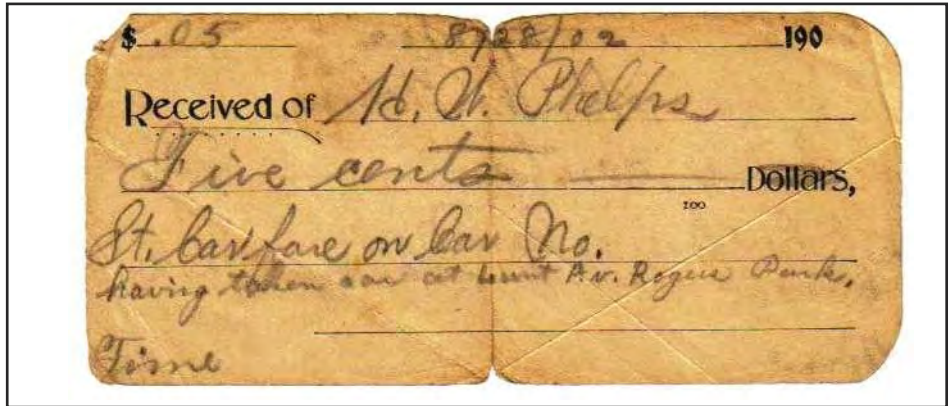 $ .05 8/28/02 190
Received of H. W. Phelps
Five cents Dollars,
100
St. Car fare on Car No.
having taken car at Lunt Av. Rogers Park.
Time